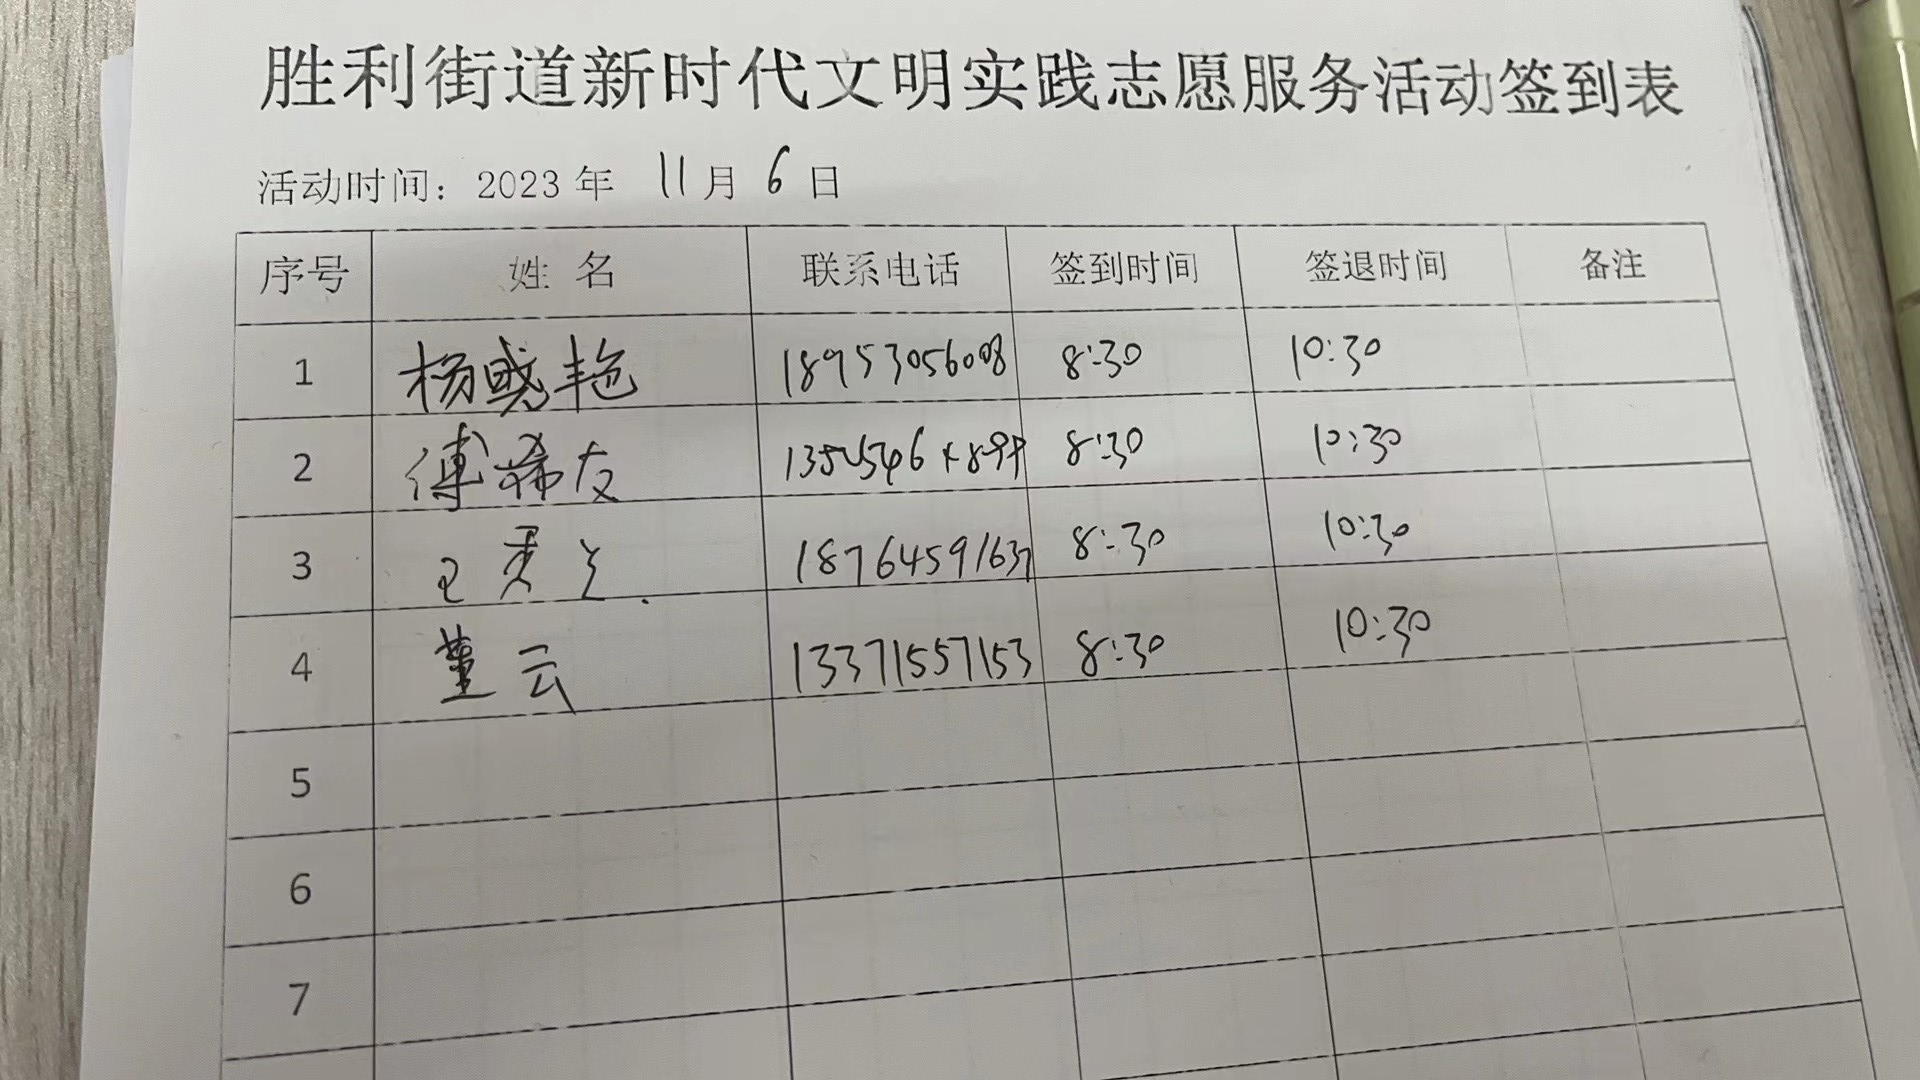 胜利街道新时代文明实践志愿服务活动签到表
活动时间：2023 年 11 月 6 日
序号 姓 名 联系电话 签到时间 签退时间 备注
1 杨 艳 18953056008 8:30 10:30
2 傅希友 8:30 10:30
3 王 18764591637 8:30 10:30
4 董云 13371557153 8:30 10:30
5
6
7